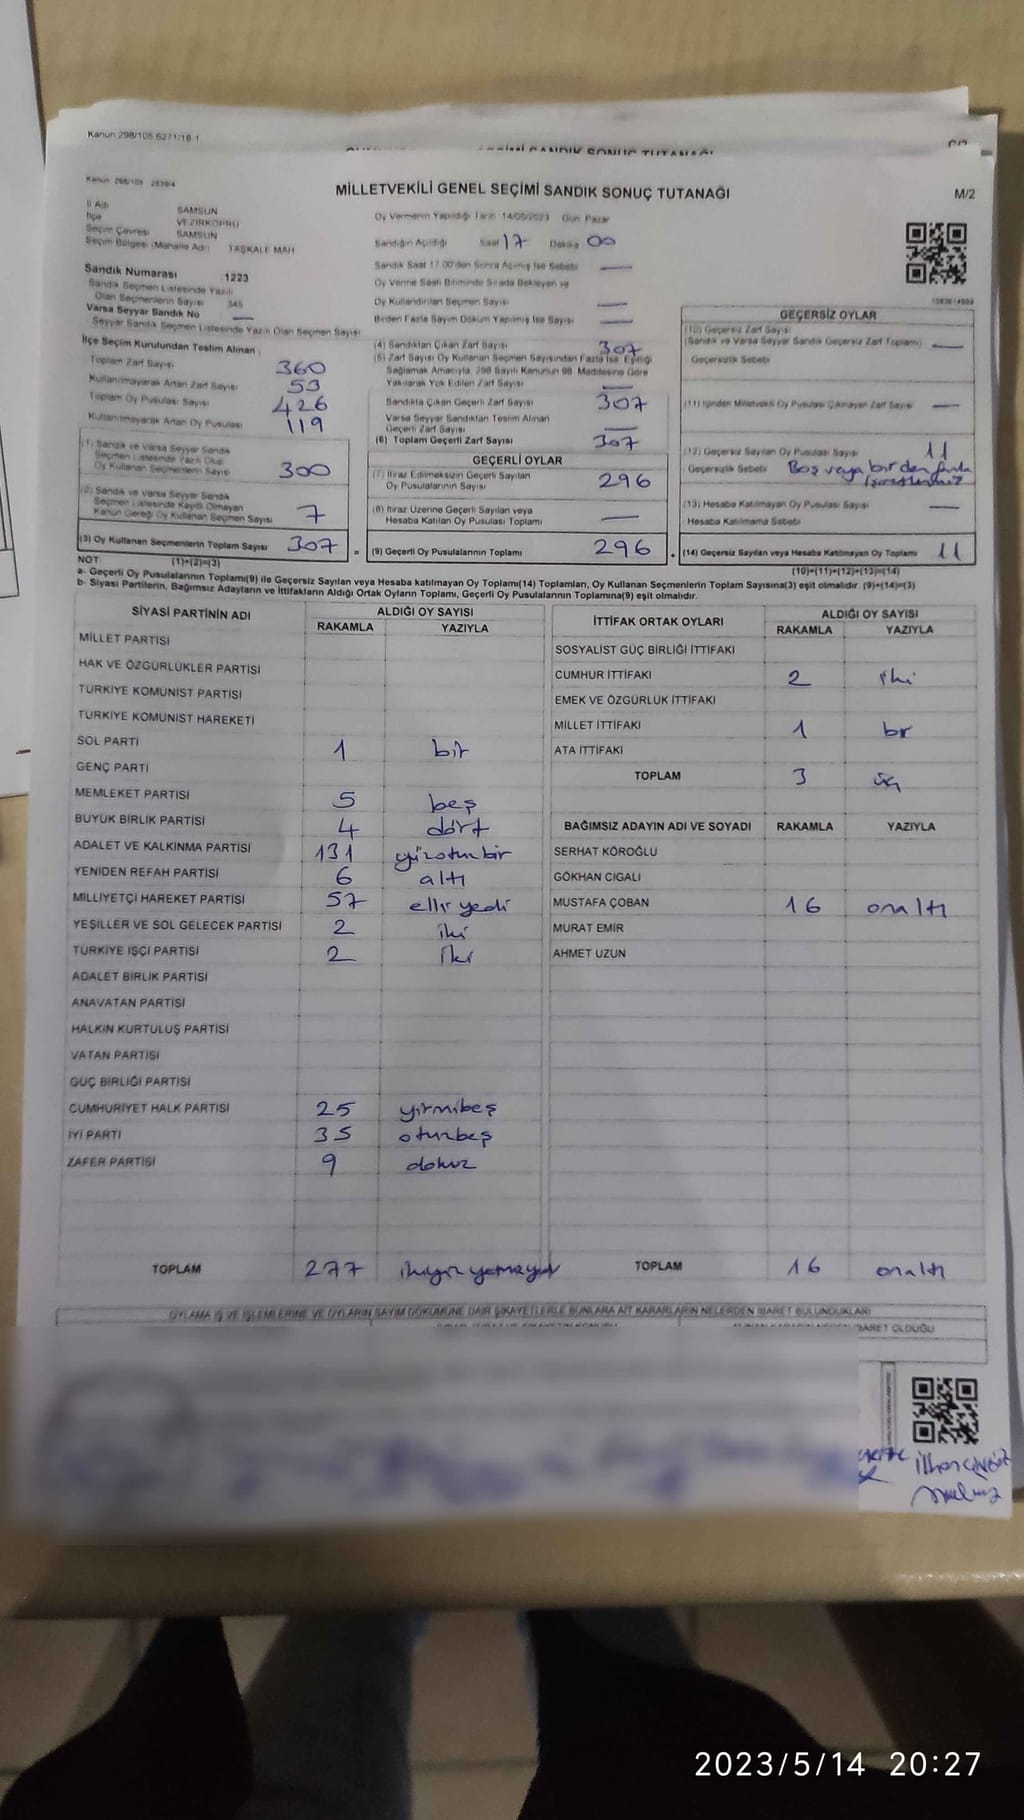 Kanun:298/105 6271/16 1
MİLLETVEKİLİ GENEL SEÇİMİ SANDIK SONUÇ TUTANAĞI
M/2
İl Adı SAMSUN
İlçe VEZİRKÖPRÜ
Seçim Çevresi SAMSUN
Seçim Bölgesi (Mahalle Adı) TAŞKALE MAH
Oy Vermenin Yapıldığı Tarih 14/05/2023 Gün Pazar
Sandığın Açıldığı Saat 17 Dakika 00
Sandık Saat 17:00'den Sonra Açılmış İse Sebebi —
Oy Verme Saati Bitiminde Sırada Bekleyen ve
Oy Kullandırılan Seçmen Sayısı —
Birden Fazla Sayım Döküm Yapılmış İse Sayısı —
Sandık Numarası 1223
Sandık Seçmen Listesinde Yazılı
Olan Seçmenlerin Sayısı 345
Varsa Seyyar Sandık No —
Seyyar Sandık Seçmen Listesinde Yazılı Olan Seçmen Sayısı
İlçe Seçim Kurulundan Teslim Alınan
Toplam Zarf Sayısı 360
Kullanılmayarak Artan Zarf Sayısı 53
Toplam Oy Pusulası Sayısı 426
Kullanılmayarak Artan Oy Pusulası 119
(1) Sandık ve Varsa Seyyar Sandık
Seçmen Listesinde Yazılı Olup
Oy Kullanan Seçmenlerin Sayısı 300
(2) Sandık ve Varsa Seyyar Sandık
Seçmen Listesinde Kayıtlı Olmayan
Kanun Gereği Oy Kullanan Seçmen Sayısı 7
(3) Oy Kullanan Seçmenlerin Toplam Sayısı 307 =
(1)+(2)=(3)
(4) Sandıktan Çıkan Zarf Sayısı 307
(5) Zarf Sayısı Oy Kullanan Seçmen Sayısından Fazla İse, Eşitliği
Sağlamak Amacıyla, 298 Sayılı Kanunun 98. Maddesine Göre
Yakılarak Yok Edilen Zarf Sayısı —
Sandıkta Çıkan Geçerli Zarf Sayısı 307
Varsa Seyyar Sandıktan Teslim Alınan
Geçerli Zarf Sayısı —
(6) Toplam Geçerli Zarf Sayısı 307
GEÇERLİ OYLAR
(7) İtiraz Edilmeksizin Geçerli Sayılan
Oy Pusulalarının Sayısı 296
(8) İtiraz Üzerine Geçerli Sayılan veya
Hesaba Katılan Oy Pusulası Toplamı —
(9) Geçerli Oy Pusulalarının Toplamı 296 +
GEÇERSİZ OYLAR
(10) Geçersiz Zarf Sayısı
(Sandık ve Varsa Seyyar Sandık Geçersiz Zarf Toplamı) —
Geçersizlik Sebebi
(11) İçinden Milletvekili Oy Pusulası Çıkmayan Zarf Sayısı —
(12) Geçersiz Sayılan Oy Pusulası Sayısı 11
Geçersizlik Sebebi Boş veya birden fazla
(13) Hesaba Katılmayan Oy Pusulası Sayısı —
Hesaba Katılmama Sebebi
(14) Geçersiz Sayılan veya Hesaba Katılmayan Oy Toplamı 11
(10)+(11)+(12)+(13)=(14)
NOT:
a- Geçerli Oy Pusulalarının Toplamı(9) ile Geçersiz Sayılan veya Hesaba katılmayan Oy Toplamı(14) Toplamları, Oy Kullanan Seçmenlerin Toplam Sayısına(3) eşit olmalıdır. (9)+(14)=(3)
b- Siyasi Partilerin, Bağımsız Adayların ve İttifakların Aldığı Ortak Oyların Toplamı, Geçerli Oy Pusulalarının Toplamına(9) eşit olmalıdır.
SİYASİ PARTİNİN ADI ALDIĞI OY SAYISI
RAKAMLA YAZIYLA
MİLLET PARTİSİ
HAK VE ÖZGÜRLÜKLER PARTİSİ
TÜRKİYE KOMÜNİST PARTİSİ
TÜRKİYE KOMÜNİST HAREKETİ
SOL PARTİ 1 bir
GENÇ PARTİ
MEMLEKET PARTİSİ 5 beş
BÜYÜK BİRLİK PARTİSİ 4 dört
ADALET VE KALKINMA PARTİSİ 131 yüzotuzbir
YENİDEN REFAH PARTİSİ 6 altı
MİLLİYETÇİ HAREKET PARTİSİ 57 elli yedi
YEŞİLLER VE SOL GELECEK PARTİSİ 2 iki
TÜRKİYE İŞÇİ PARTİSİ 2 iki
ADALET BİRLİK PARTİSİ
ANAVATAN PARTİSİ
HALKIN KURTULUŞ PARTİSİ
VATAN PARTİSİ
GÜÇ BİRLİĞİ PARTİSİ
CUMHURİYET HALK PARTİSİ 25 yirmibeş
İYİ PARTİ 35 otuzbeş
ZAFER PARTİSİ 9 dokuz
TOPLAM 277
İTTİFAK ORTAK OYLARI ALDIĞI OY SAYISI
RAKAMLA YAZIYLA
SOSYALİST GÜÇ BİRLİĞİ İTTİFAKI
CUMHUR İTTİFAKI 2 iki
EMEK VE ÖZGÜRLÜK İTTİFAKI
MİLLET İTTİFAKI 1 bir
ATA İTTİFAKI
TOPLAM 3 üç
BAĞIMSIZ ADAYIN ADI VE SOYADI RAKAMLA YAZIYLA
SERHAT KÖROĞLU
GÖKHAN CIGALI
MUSTAFA ÇOBAN 16 onaltı
MURAT EMİR
AHMET UZUN
TOPLAM 16 onaltı
OYLAMA İŞ VE İŞLEMLERİNE VE OYLARIN SAYIM DÖKÜMÜNE DAİR ŞİKAYETLERLE BUNLARA AİT KARARLARIN NELERDEN İBARET BULUNDUKLARI
2023/5/14 20:27